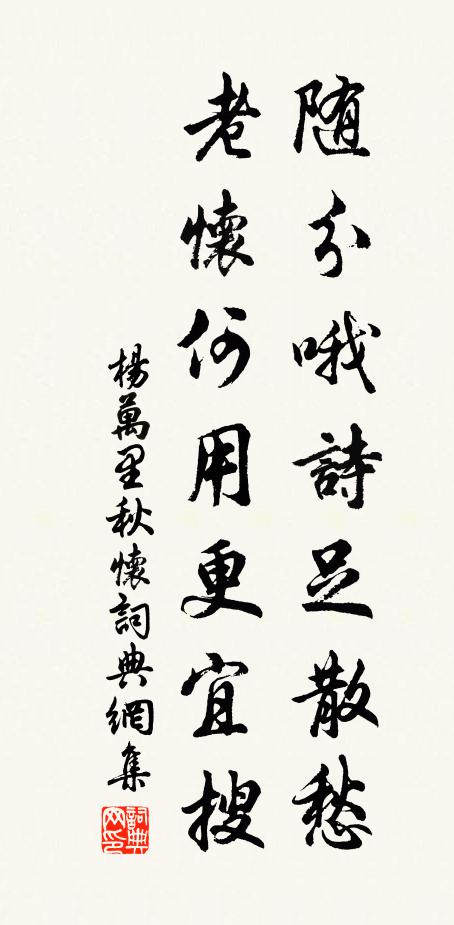 随分哦詩足散愁
老懷何用更宜搜
楊萬里秋懷詞典網集
詞典网印